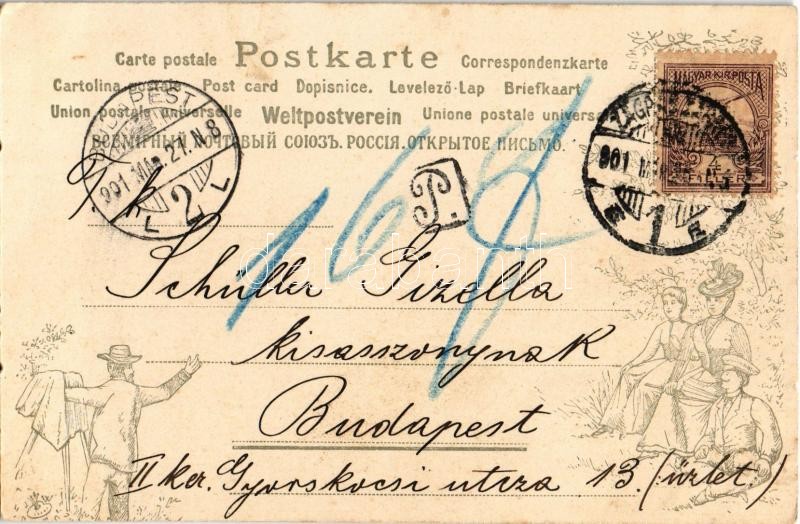 Carte postale Postkarte Correspondenzkarte
Cartolina postale Post card Dopisnice. Levelező-Lap Briefkaart
Union postale universelle Weltpostverein Unione postale universale
ВСЕМІРНЫЙ ПОЧТОВЫЙ СОЮЗЪ. РОССІЯ. ОТКРЫТОЕ ПИСЬМО.
MAGYAR KIR. POSTA
4
FILLÉR
BUDAPEST
901 MÁR. 27. N. 8
2
ZÁGRÁB
901
1
P.
T. k.
168
Schüller Gizella
kisasszonynak
Budapest
II ker. Gyorskocsi utcza 13. (üzlet.)
darabanth